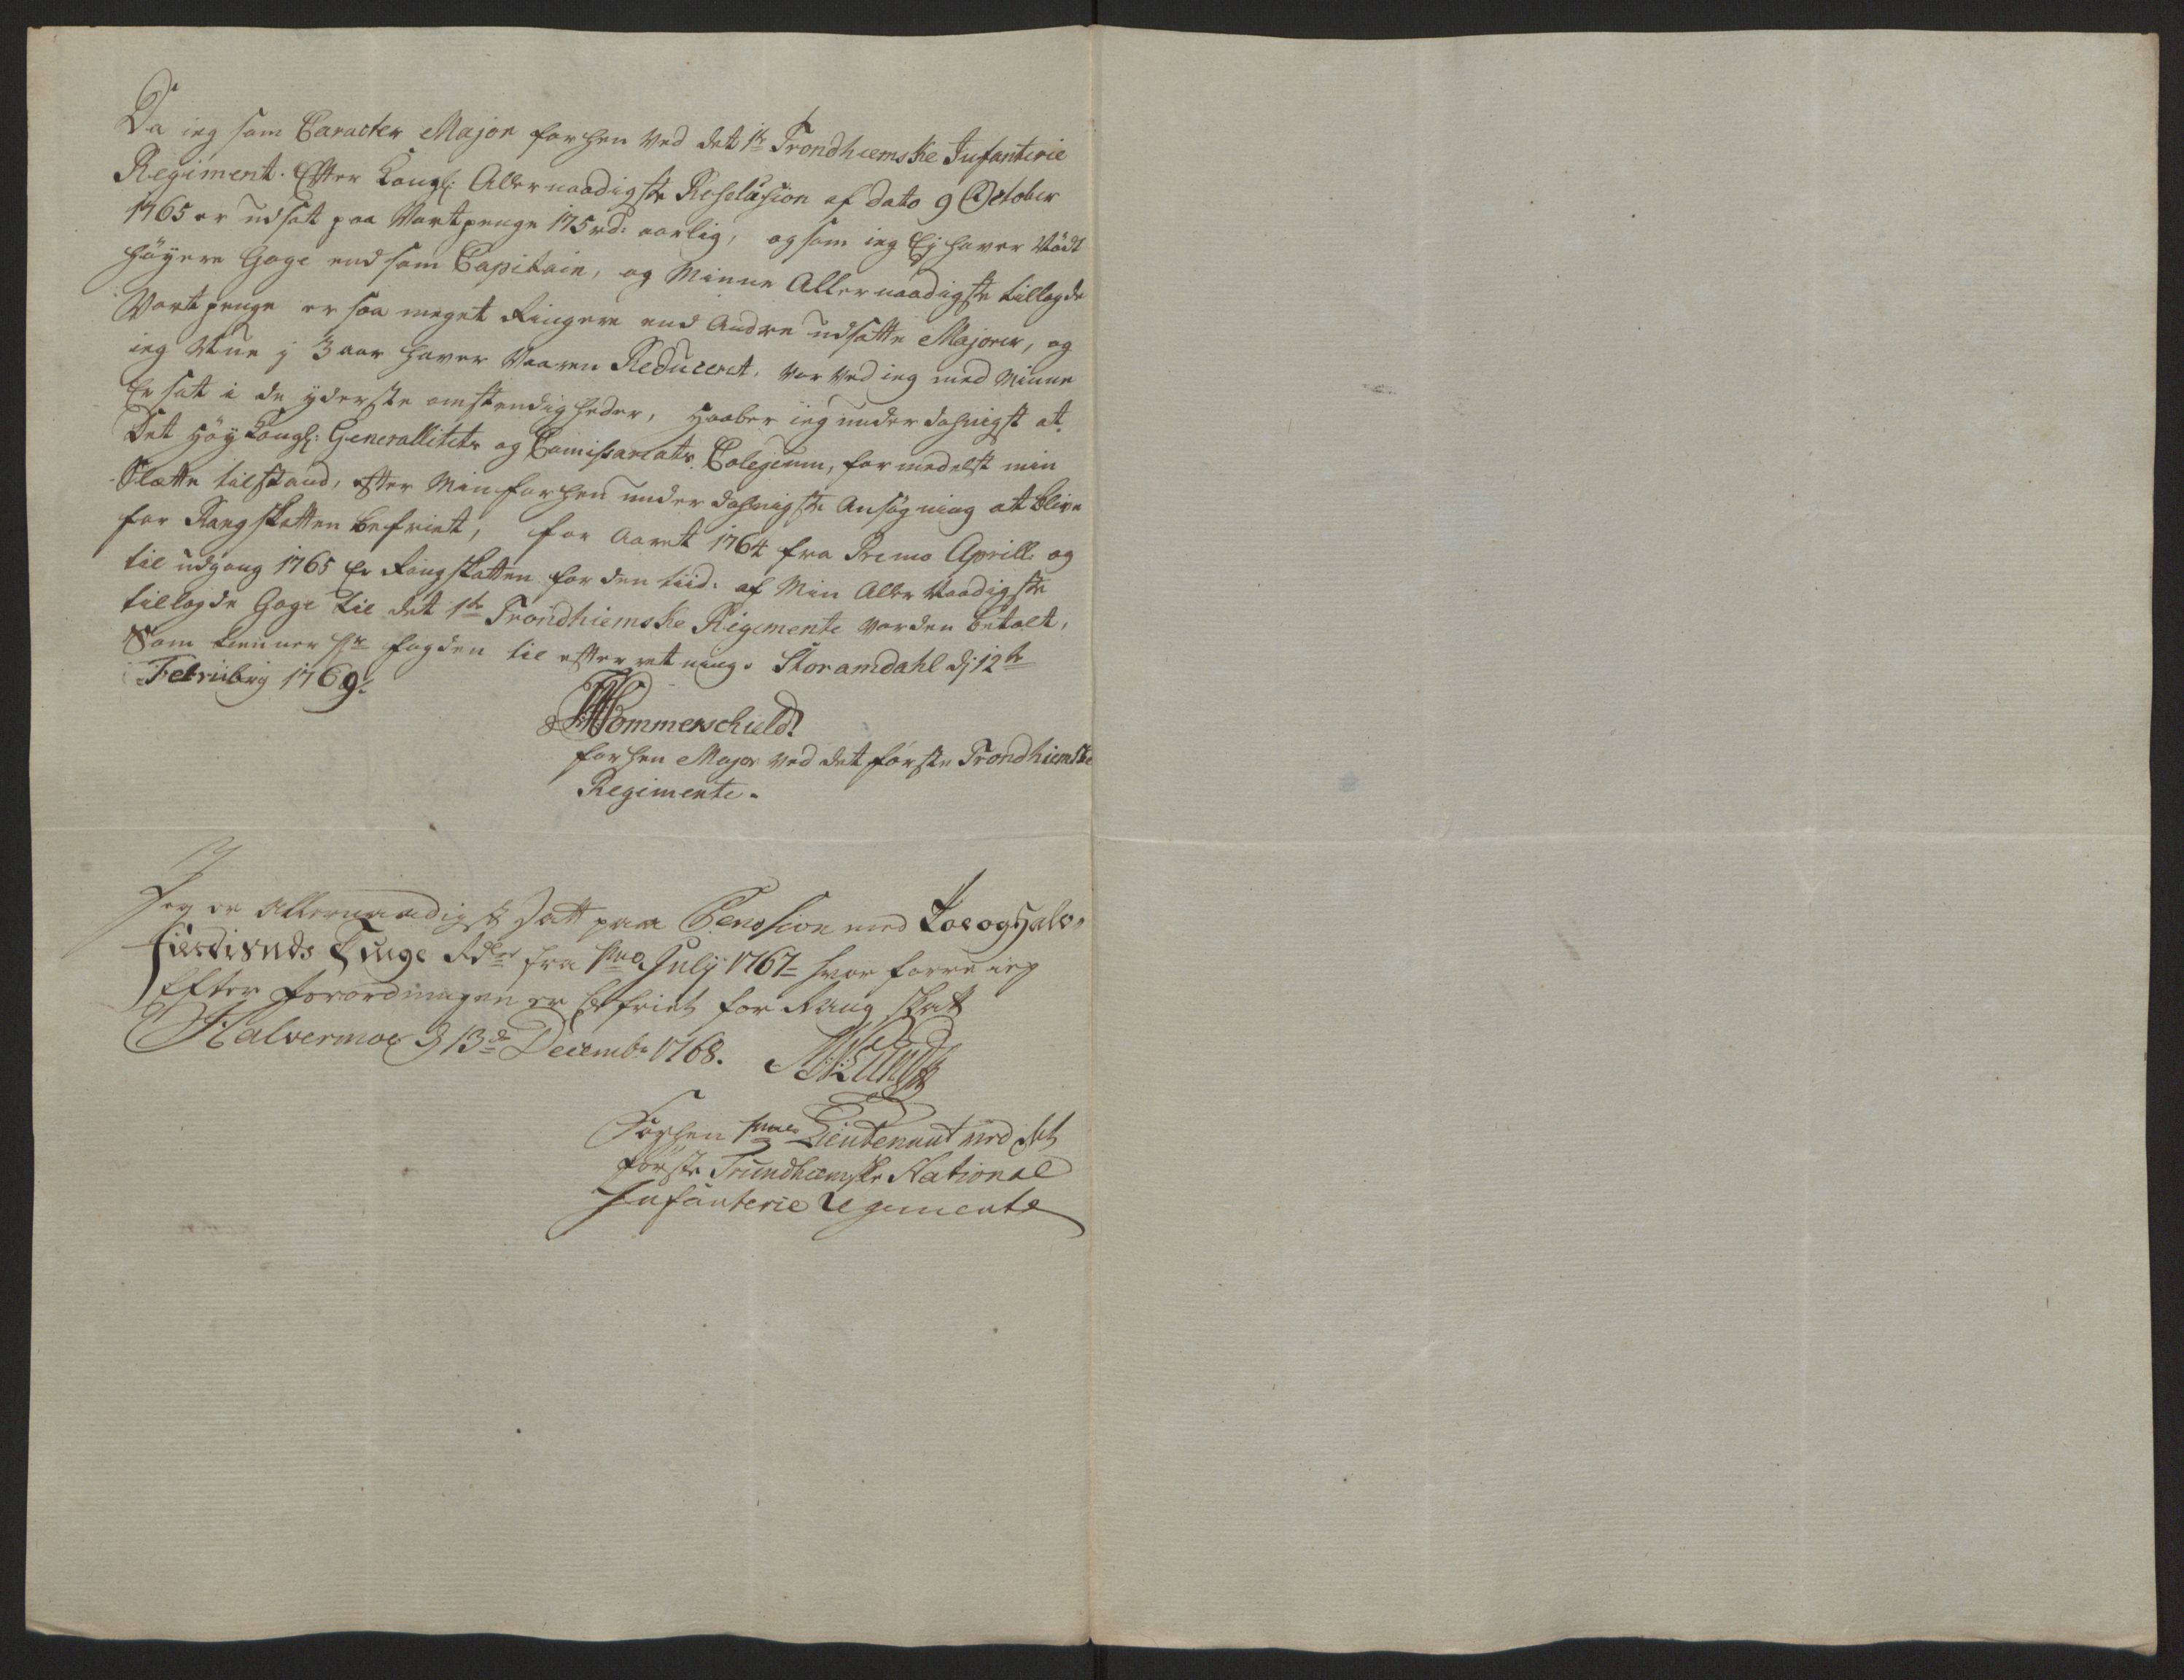 Da ieg som Caracter Major forhen ved det 1te Trondhiemske Infanterie
Regiment. Efter Kongl: Allernaadigste Resolusion af dato 9 October
1765 er udsat paa Vartpenge 175 rd: aarlig, og som ieg Ej haver Nødt
höyere Gage end som Capitain, og Minne Allernaadigste tillagde
Vartpenge er saa meget Ringere end Andre udsatte Majorer, og
ieg Nu j 3 aar haver Vaaren Reduceret, vor ved ieg med Minne
Er sat i de yderste omstendigheder, Haaber ieg underdahnigst at
Det höy Kongl: Generallitets og Comissariats Colegium, formedelst min
Slette tilstand, efter Min forhen underdahnigste Ansögning at blive
for Rangskatten befriet, for Aaret 1764 fra Primo Aprill og
til udgang 1765 Er Rangskatten for den tiid: af Min Aller Naadigste
tillagde Gage til det 1te Trondhiemske Regimente vorden betalt,
Som tienner Hr fogden til efterretning. Storamdahl dj 12te
Februarij 1769.
Hommerschield
forhen Major ved det förste Trondhiemske
Regimente.
Jeg er Allernaadigst Satt paa Pension med Toe og Halv-
fierdisinds Tuge Rdlr fra 1mo July 1767 hvor forre ieg
Efter forordningen er befriet for Rang skatt
Halvermoe d 13de Decemb: 1768.
Forhen Lieutenant ved det
förste Trundhiemske National
Infanterie Regimente